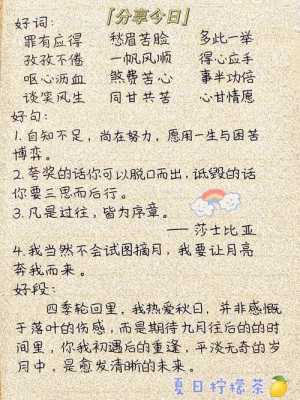 『分享今日』
好词:
罪有应得 愁眉苦脸 多此一举
孜孜不倦 一帆风顺 得心应手
呕心沥血 煞费苦心 事半功倍
谈笑风生 同甘共苦 心甘情愿
好句:
1.自知不足，尚在努力，愿用一生与困苦
博弈。
2.夸奖的话你可以脱口而出，诋毁的话
你要三思而后行。
3.凡是过往，皆为序章。
——莎士比亚
4.我当然不会试图摘月，我要让月亮
奔我而来。
好段:
四季轮回里，我热爱秋日，并非感慨
于落叶的伤感，而是期待九月往后的的时
间里，你我初遇后的重逢，平淡无奇的岁
月中，是愈发清晰的未来。
夏日柠檬茶